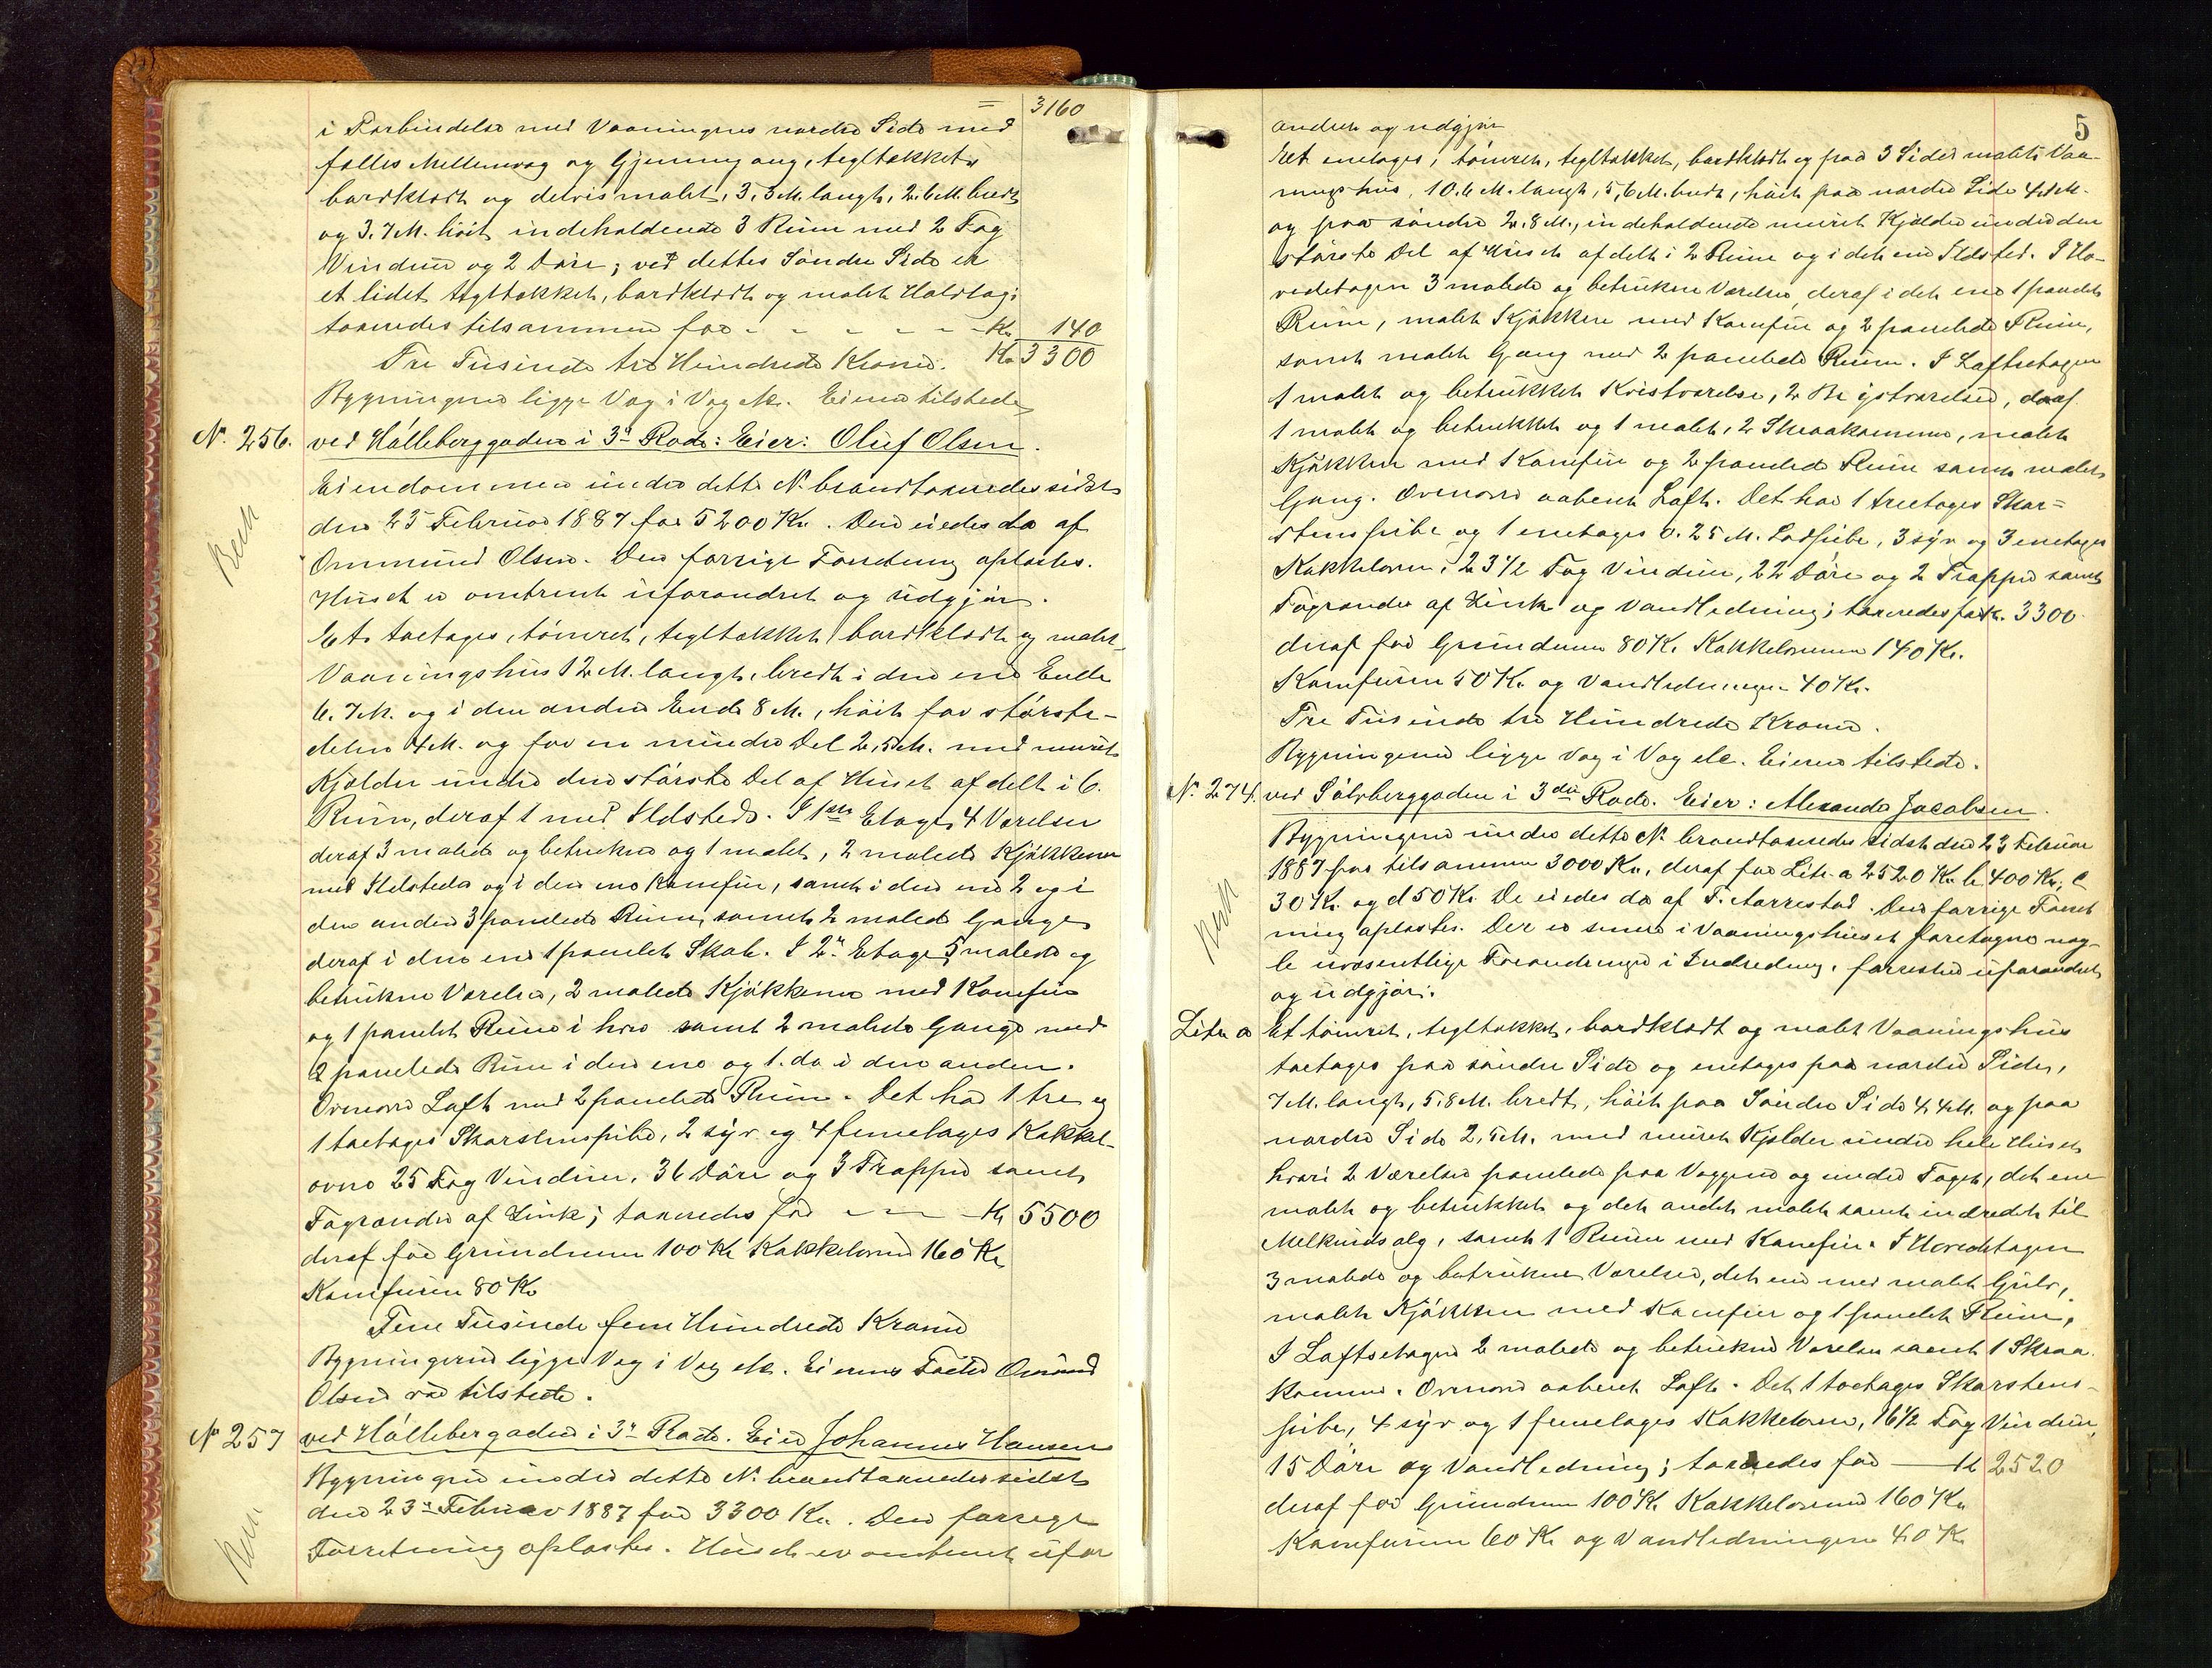 = 3160
i Forbindelse med Vaaningens nordre Side med
fælles Mellemvæg og Gjennemgang, tegltækket,
bordklædt og delvis malet, 3,3 M. langt, 2.6 M. bredt
og 3.7 M. høit indeholdende 3 Rum med 2 Fag
Vinduer og 2 Døre; ved dettes Søndre Side er
et lidet tegltækket, bordklædt og malet Halvtag;
taxeredes tilsammen for - - - - - - Kr. 140
Tre Tusinde tre Hundrede Kroner. Kr 3300
Bygningerne ligge Væg i Væg etc. Eieren tilstede
N. 256. ved Hølleberggaden i 3die Rode: Eier: Oluf Olsen.
Eiendommen under dette N. brandtaxeredes sidst
Besk
den 23 Februar 1887 for 5200 Kr. Den eiedes da af
Ommund Olsen. Den forrige Forretning oplæstes.
Huset er omtrent uforandret og udgjør.
Et toetages, tømret, tegltækket, bordklædt og malet
Vaaningshus 12 M. langt, bredt i den ene Ende
6.7 M. og i den anden Ende 8 M., høit for største-
delen 4 M. og for en mindre Del 2,5 M. med muret
Kjælder under den største Del af Huset afdelt i 6.
Rum, deraf 1 med Ildsted. I 1ste Etage 4 Værelser
deraf 3 malede og betrukne og 1 malet, 2 malede Kjøkkener
med Ildsteder og i den ene Komfur, samt i den ene 2 og i
den anden 3 panelede Rum, samt 2 malede Gange
deraf i den ene 1 panelet Skab. I 2n. Etage 5 malede og
betrukne Værelser, 2 malede Kjøkkener med Komfur
og 1 panelet Rum i hver samt 2 malede Gange med
2 panelede Rum i den ene og 1. do i den anden.
Ovenover Loft med 2 panelede Rum. Det har 1 tre og
1 toetages Skorstenspibe, 2 syv og 4 femetages Kakkel-
ovne 25 Fag Vinduer, 36 Døre og 3 Trapper samt
Tagrender af Zink; taxeredes for - - - Kr 5500
deraf for Grundmur 100 Kr Kakkelovne 160 Kr
Komfuren 80 Kr
Fem Tusinde fem Hundrede Kroner
Bygningerne ligge Væg i Væg etc. Eierens Fader Omund
Olsen var tilstede.
N. 257 ved Høllebergaden i 3die Rode. Eier Johannes Hansen
Bygningerne under dette N. brandtaxeredes sidst
den 23de Februar 1887 for 3300 Kr. Den forrige
Forretning oplæstes. Huset er omtrent ufor
5
andret og udgjør
Et enetages, tømret, tegltækket, bordklædt og paa 3 Sider malet Vaa-
ningshus, 10.6 M. langt, 5,6 M. bredt, høit paa nordre Side 4,1 M.
og paa søndre 2.8 M., indeholdende muret Kjælder under den
største Del af Huset afdelt i 2 Rum og i det ene Ildsted. I Ho-
vedetagen 3 malede og betrukne Værelser, deraf i det ene 1 panelet
Rum, malet Kjøkken med Komfur og 2 panelede Rum,
samt malet Gang med 2 panelede Rum. I Loftsetagen
1 malet og betrukket Kvistværelse, 2 Brystværelser, deraf
1 malet og betrukket og 1 malet, 2 Skraakammer, malet
Kjøkken med Komfur og 2 panelede Rum samt malet
Gang. Ovenover aabent Loft. Det har 1 treetages Skor=
stenspibe og 1 enetages 0.25 M. Lodpibe, 3 syv og 3 enetages
Kakkelovne, 23 1/2 Fag Vinduer, 22 Døre og 2 Trapper samt
Tagrender af Zink og Vandledning; taxeredes for Kr. 3300
deraf for Grundmur 80 Kr. Kakkelovnene 140 Kr.
Komfuren 50 Kr. og Vandledningen 40 Kr.
Tre Tusinde tre Hundrede Kroner.
Bygningerne ligge Væg i Væg etc. Eieren tilstede.
N. 274. ved Sølvberggaden i 3die Rode. Eier: Alexander Jacobsen.
Bygningerne under dette N. brandtaxeredes sidst den 23 Februar
1887 for tilsammen 3000 Kr., deraf for Litr. a 2520 Kr. b 400 Kr, c
30 Kr. og d 50 Kr. De eiedes da af T. Aarrestad. Den forrige Forret
ning oplæstes. Der er senere i Vaaningshuset foretagne nog-
le uvæsentlige Forandringer i Indredning, forresten uforandret
og udgjør:
Litr. a Et tømret, tegltækket, bordklædt og malet Vaaningshus
toetages paa søndre Side og enetages paa nordre Side,
7 M. langt, 5.8 M. bredt, høit paa Søndre Side 4.4 M. og paa
nordre Side 2,5 M. med muret Kjælder under hele Huset
hvori 2 Værelser panelede paa Væggene og under Taget, det ene
malet og betrukket og det andet malet samt indredet til
Melkeudsalg, samt 1 Rum med Komfur. I Hovedetagen
3 malede og betrukne Værelser, det ene med malet Gulv,
malet Kjøkken med Komfur og 1 panelet Rum,
I Loftsetagen 2 malede og betrukne Værelser samt 1 Skraa
kammer. Ovenover aabent Loft. Det 1 toetages Skorstens-
pibe, 4 syv og 1 femetages Kakkelovn, 16 1/2 Fag Vinduer,
15 Døre og Vandledning; taxeredes for — Kr 2520
deraf for Grundmur 100 Kr. Kakkelovnene 160 Kr.
Komfuren 60 Kr og Vandledningen 40 Kr.